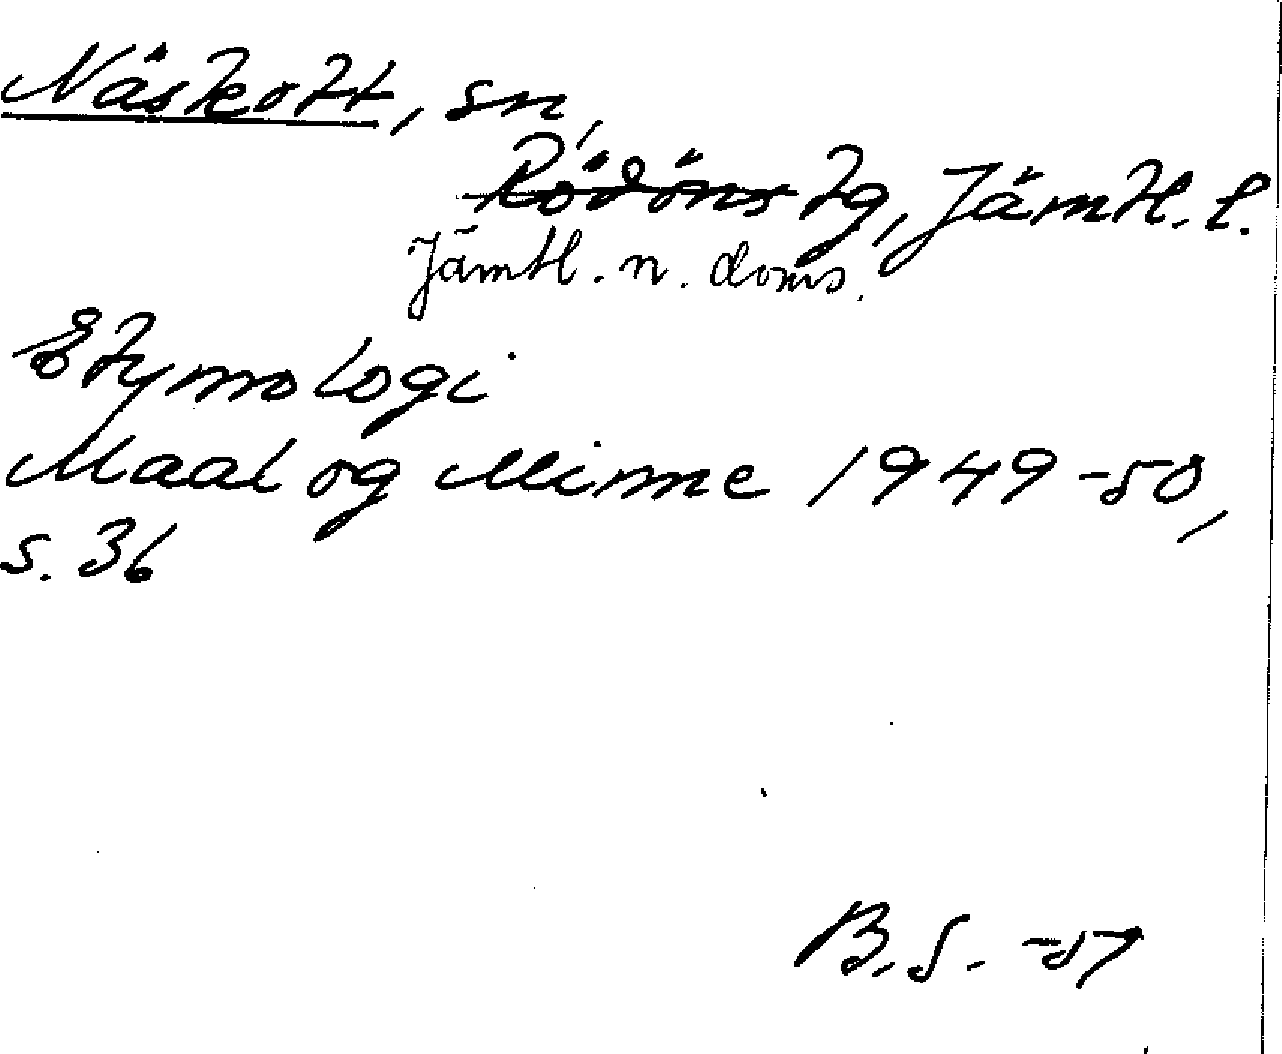 Näskott, sn,
Rödöns tg, Jämtl. l.
Jämtl. n. doms.
Etymologi
Maal og Minne 1949-50,
s. 36
B.S. -57